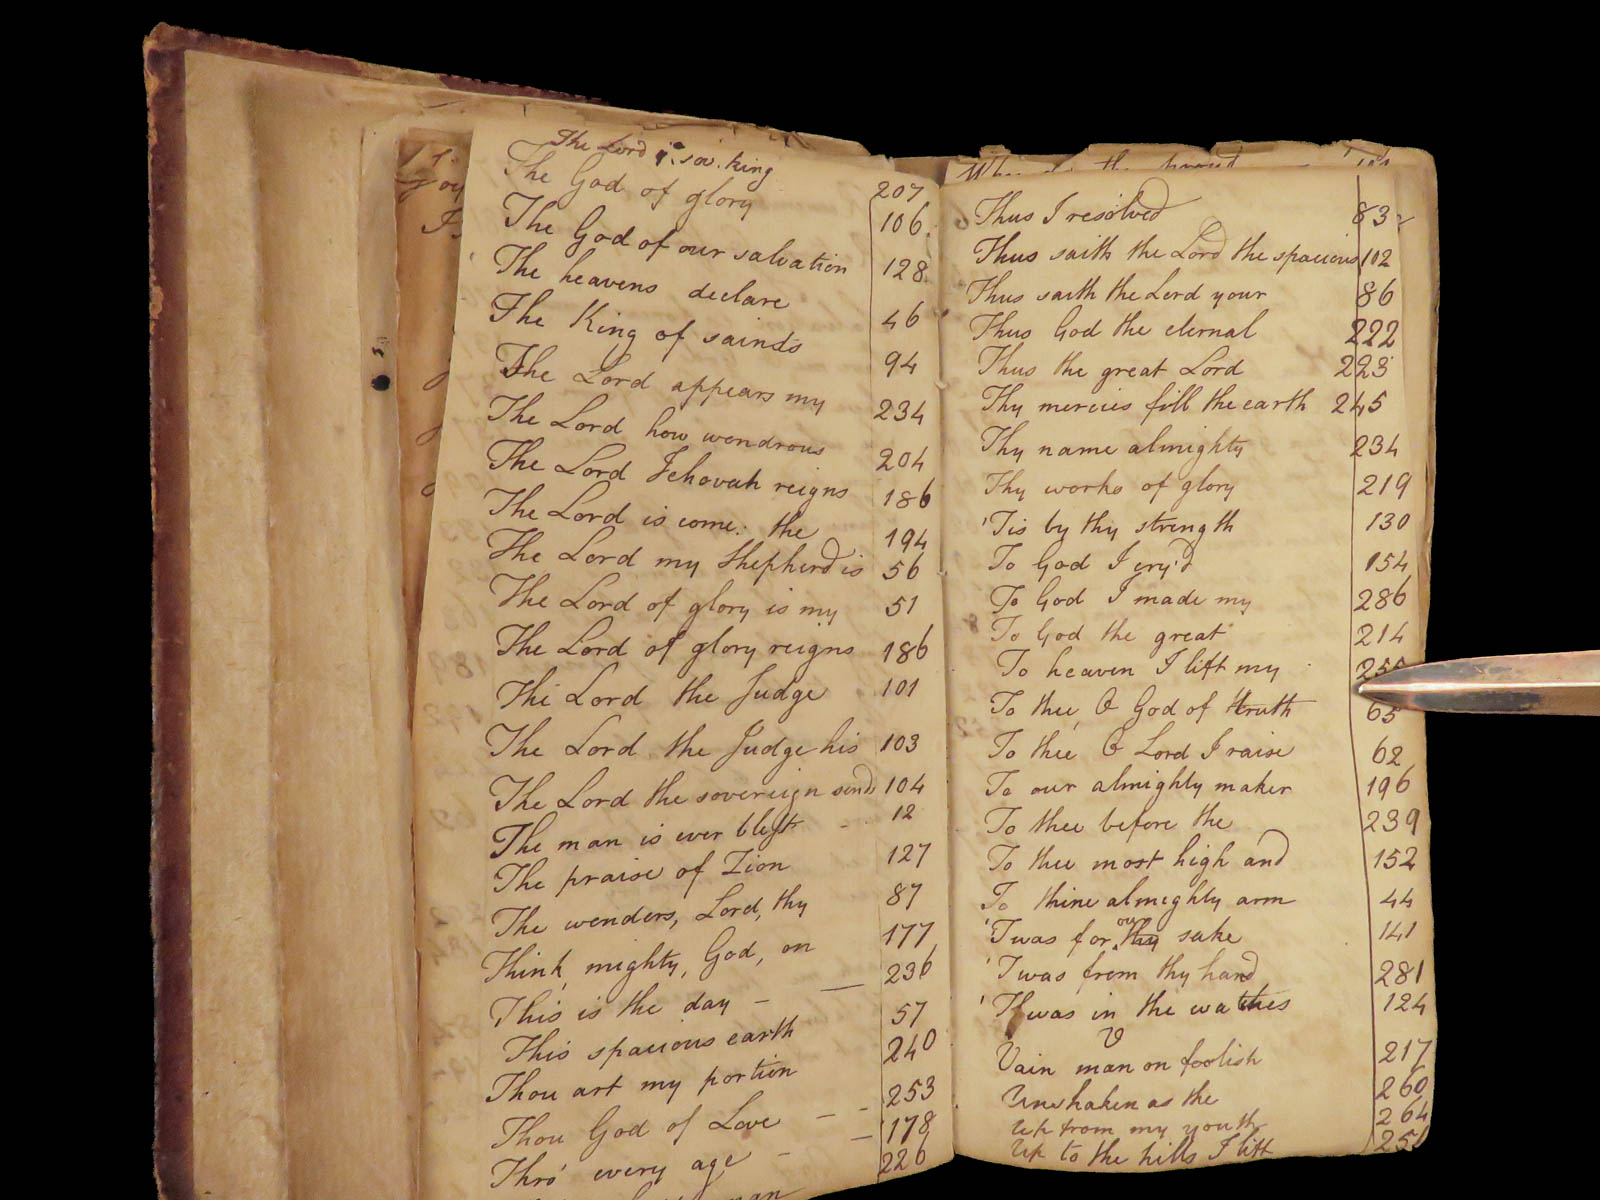 The Lord is sov. king 207
The God of glory 106
The God of our salvation 128
The heavens declare 46
The King of saints 94
The Lord appears my 234
The Lord how wondrous 204
The Lord Jehovah reigns 186
The Lord is come: the 194
The Lord my Shepherd is 56
The Lord of glory is my 51
The Lord of glory reigns 186
The Lord the Judge 101
The Lord the Judge his 103
The Lord the sovereign sends 104
The man is ever blest - 12
The praise of Zion 127
The wonders, Lord, thy 87
Think, mighty, God, on 177
This is the day - 236
This spacious earth 57
Thou art my portion 240
Thou God of Love - - 253
Thro' every age - 178
man 226
Thus I resolved 83
Thus saith the Lord the spacious 102
Thus saith the Lord your 86
Thus God the eternal 222
Thus the great Lord 223
Thy mercies fill the earth 245
Thy name almighty 234
Thy works of glory 219
'Tis by thy strength 130
To God I cry'd 154
To God I made my 286
To God the great 214
To heaven I lift my 255
To thee, O God of truth 65
To thee O Lord I raise 62
To our almighty maker 196
To thee before the 239
To thee most high and 152
To thine almighty arm 44
'Twas for our thy sake 141
'Twas from thy hand 281
'Twas in the watches 124
V
Vain man on foolish 217
Unshaken as the 260
Up from my youth 264
Up to the hills I lift